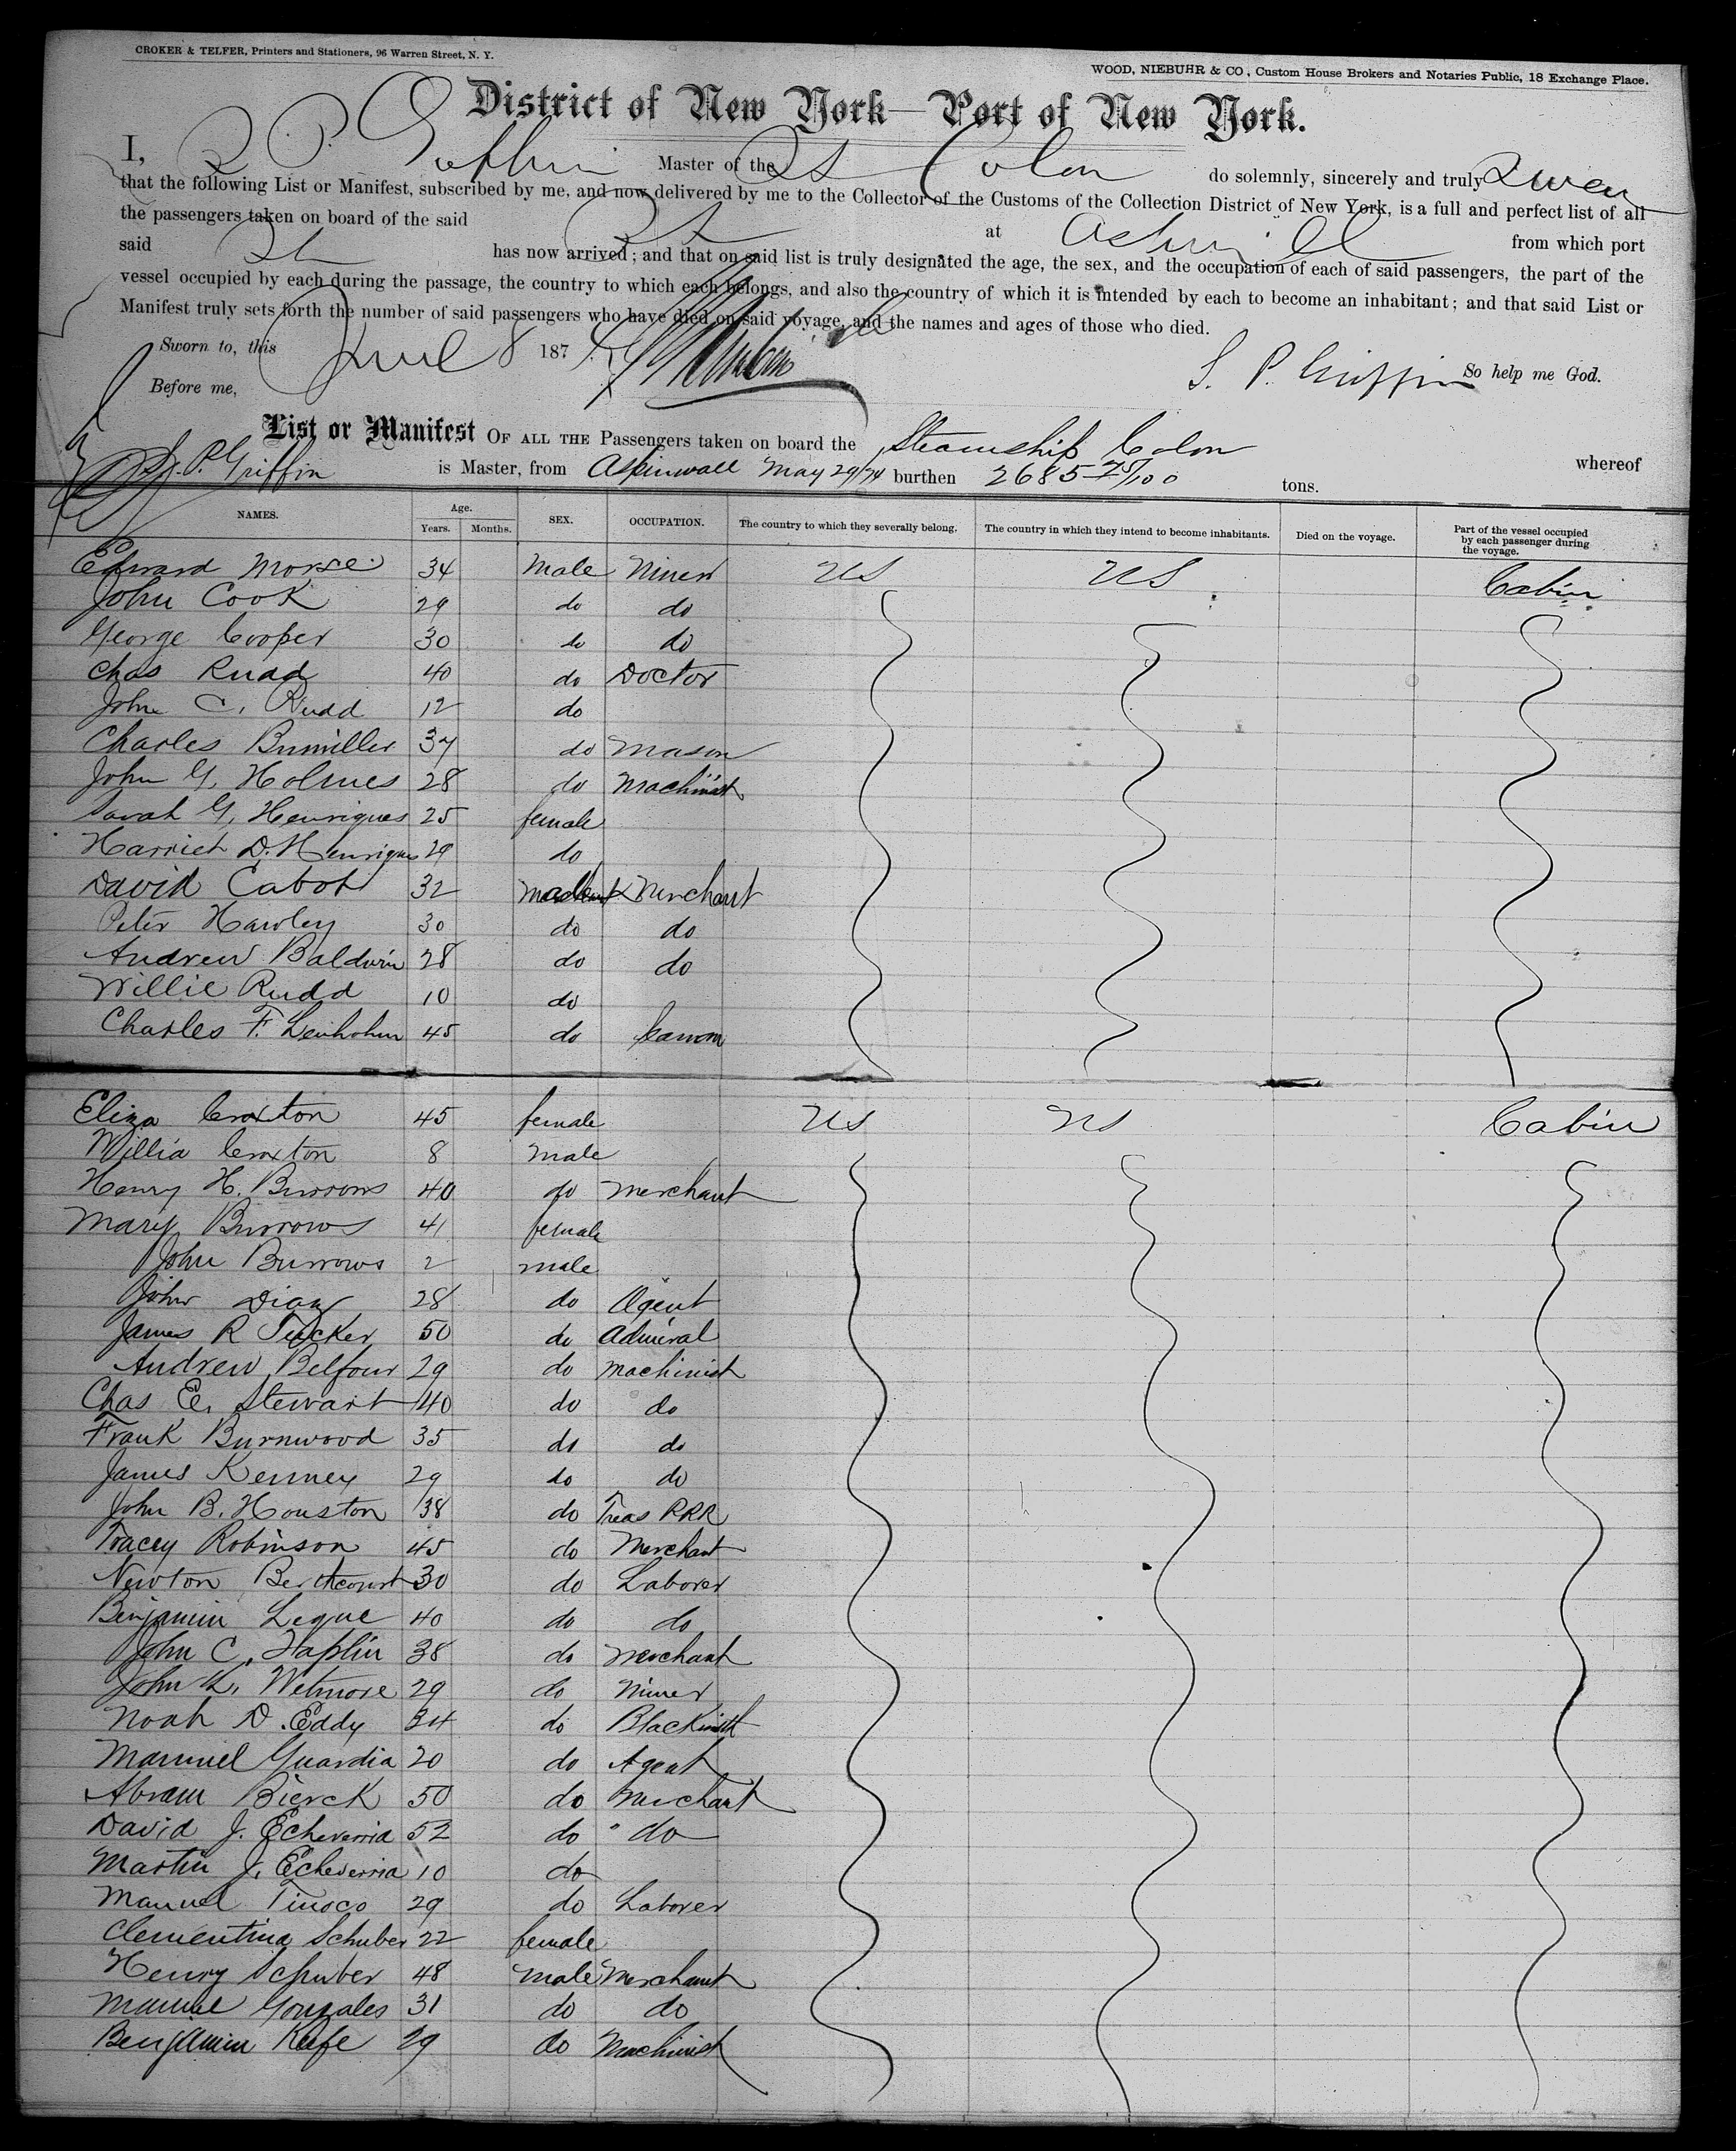 CROKER & TELFER, Printers and Stationers, 96 Warren Street, N. Y.
WOOD, NIEBUHR & CO., Custom House Brokers and Notaries Public, 18 Exchange Place.
District of New York—Port of New York.
I, S. P. Griffin Master of the SS Colon do solemnly, sincerely and truly Swear
that the following List or Manifest, subscribed by me, and now delivered by me to the Collector of the Customs of the Collection District of New York, is a full and perfect list of all
the passengers taken on board of the said SS at Aspinwall from which port
said SS has now arrived; and that on said list is truly designated the age, the sex, and the occupation of each of said passengers, the part of the
vessel occupied by each during the passage, the country to which each belongs, and also the country of which it is intended by each to become an inhabitant; and that said List or
Manifest truly sets forth the number of said passengers who have died on said voyage, and the names and ages of those who died.
Sworn to, this June 8 1874 So help me God.
Before me, S. P. Griffin
List or Manifest OF ALL THE Passengers taken on board the Steamship Colon whereof
S. P. Griffin is Master, from Aspinwall May 29/74 burthen 2685 75/100 tons.
NAMES. Age. Years. Months. SEX. OCCUPATION. The country to which they severally belong. The country in which they intend to become inhabitants. Died on the voyage. Part of the vessel occupied by each passenger during the voyage.
Edward Morse 34 Male Miner US US Cabin
John Cook 29 do do
George Cooper 30 do do
Chas Rudd 40 do Doctor
John C. Rudd 12 do
Charles Bumiller 37 do Mason
John G. Holmes 28 do Machinist
Sarah G. Henriques 25 female
Harriet D. Henriques 29 do
David Cabot 32 Merchant
Peter Hawley 30 do do
Andrew Baldwin 28 do do
Willie Rudd 10 do
Charles F. 45 do
Eliza Croxton 45 female US US Cabin
Willia Croxton 8 male
Henry H. Burrows 40 do Merchant
Mary Burrows 41 female
John Burrows 2 male
John Diaz 28 do Agent
James R Tucker 50 do Admiral
Andrew Belfour 29 do Machinist
Chas E. Stewart 40 do do
Frank Burnwood 35 do do
James Kenney 29 do do
John B. Houston 38 do Treas PRR
Tracey Robinson 45 do Merchant
Newton 30 do Laborer
Benjamin Legue 40 do do
John C. Taplin 38 do Merchant
John L. Wetmore 29 do Miner
Noah D. Eddy 34 do Blacksmith
Manuel Guardia 20 do Agent
Abram Bierck 50 do Merchant
David J. Echeverria 52 do " do
Martin J. Echeverria 10 do
Manuel Tinoco 29 do Laborer
Clementina Schuber 22 female
Henry Schuber 48 male Merchant
Manuel Gonzales 31 do do
Benjamin Kefe 29 do Machinist